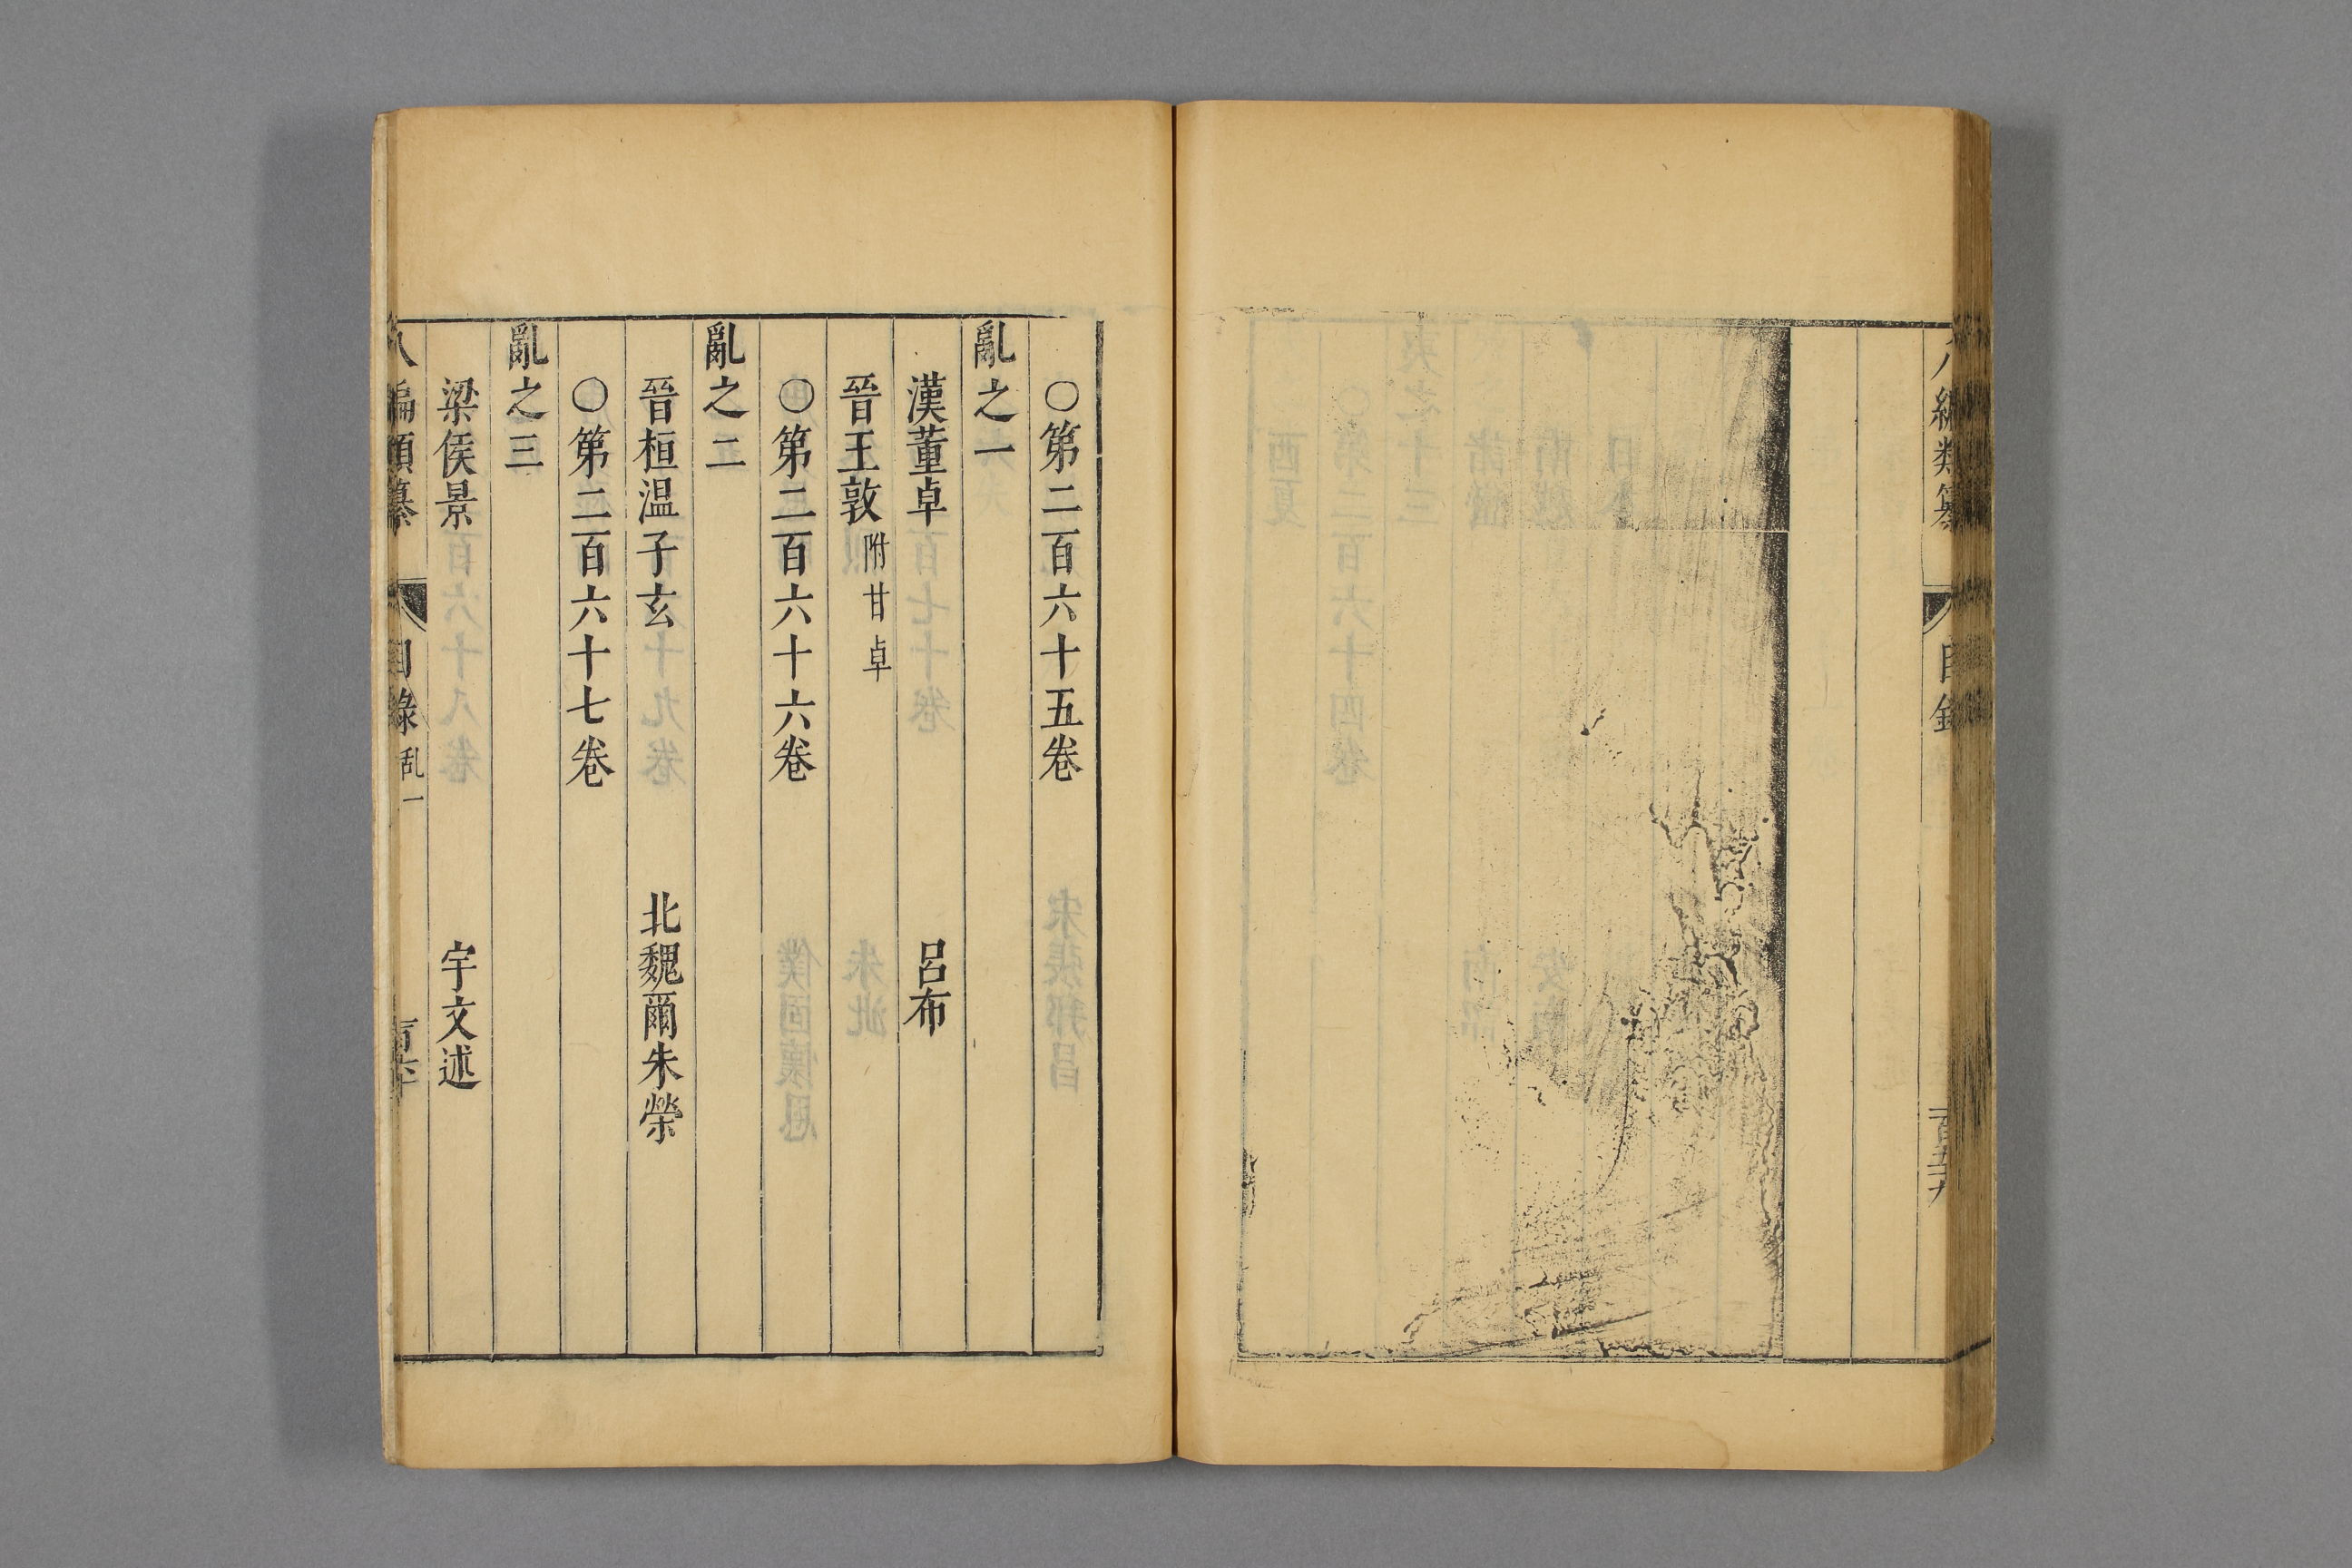 八編類纂 目錄
〇第二百六十五卷
亂之一
漢董卓 呂布
晉王敦 附甘卓
〇第二百六十六卷
亂之二
晉桓温子玄 北魏爾朱榮
〇第二百六十七卷
亂之三
梁侯景 宇文述
八編類纂 目錄 乱一